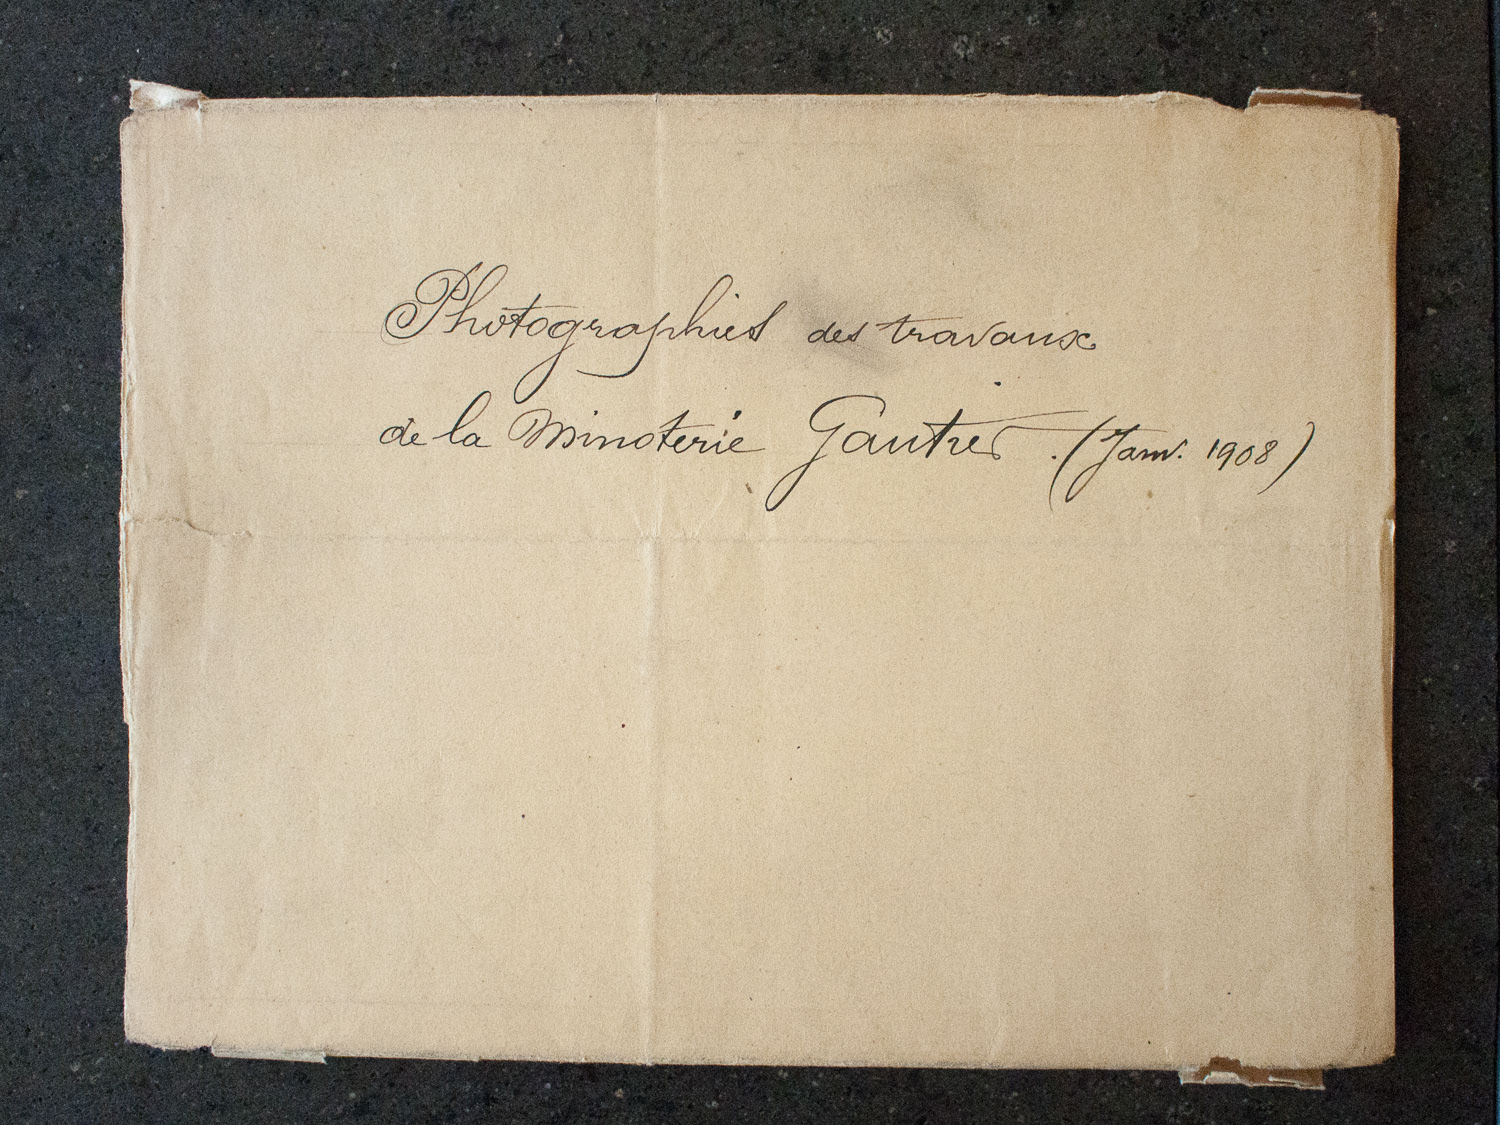 Photographies des travaux
de la Minoterie Gautier. (Janv. 1908)